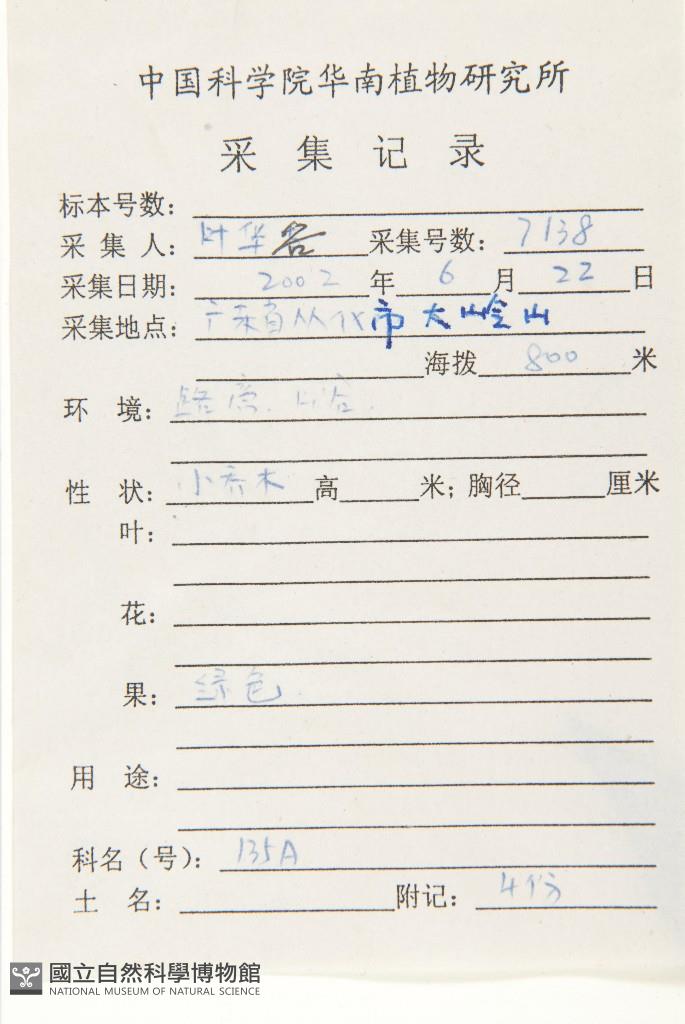 中国科学院华南植物研究所
采集记录
标本号数：
采集人：叶华谷 采集号数：7138
采集日期：2002年6月22日
采集地点：广东省从化市大岭山
海拨 800 米
环境：路旁.山谷.
性状：小乔木 高 米；胸径 厘米
叶：
花：
果：绿色.
用途：
科名（号）：135A
土名： 附记：4份
國立自然科學博物館
NATIONAL MUSEUM OF NATURAL SCIENCE